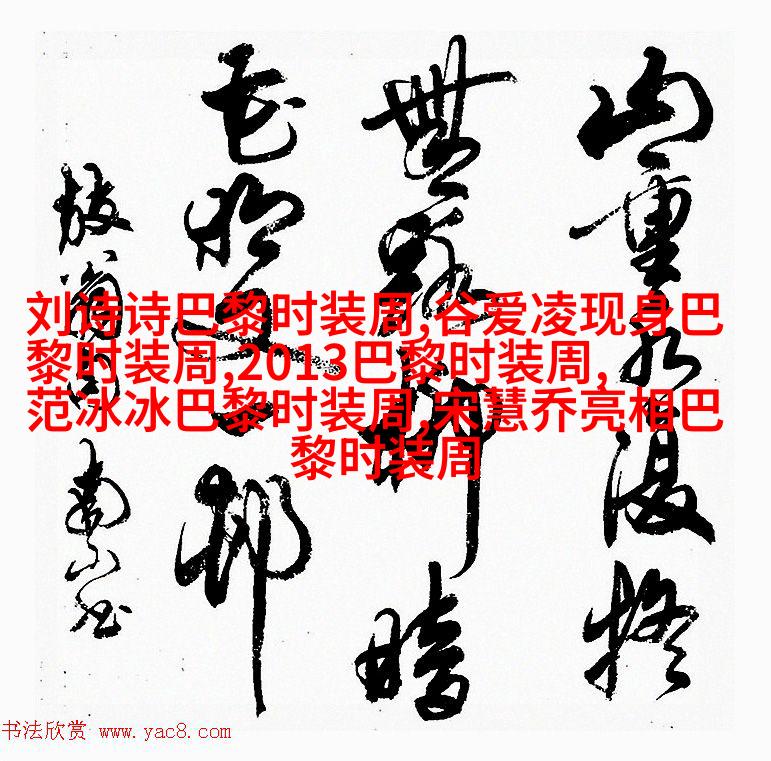 山重水復疑
無路柳暗
花明又一邨
放翁句 南
刘诗诗巴黎时装周,谷爱凌现身巴
黎时装周,2013巴黎时装周,
范冰冰巴黎时装周,宋慧乔亮相巴
黎时装周
书法欣赏 www.yac8.com